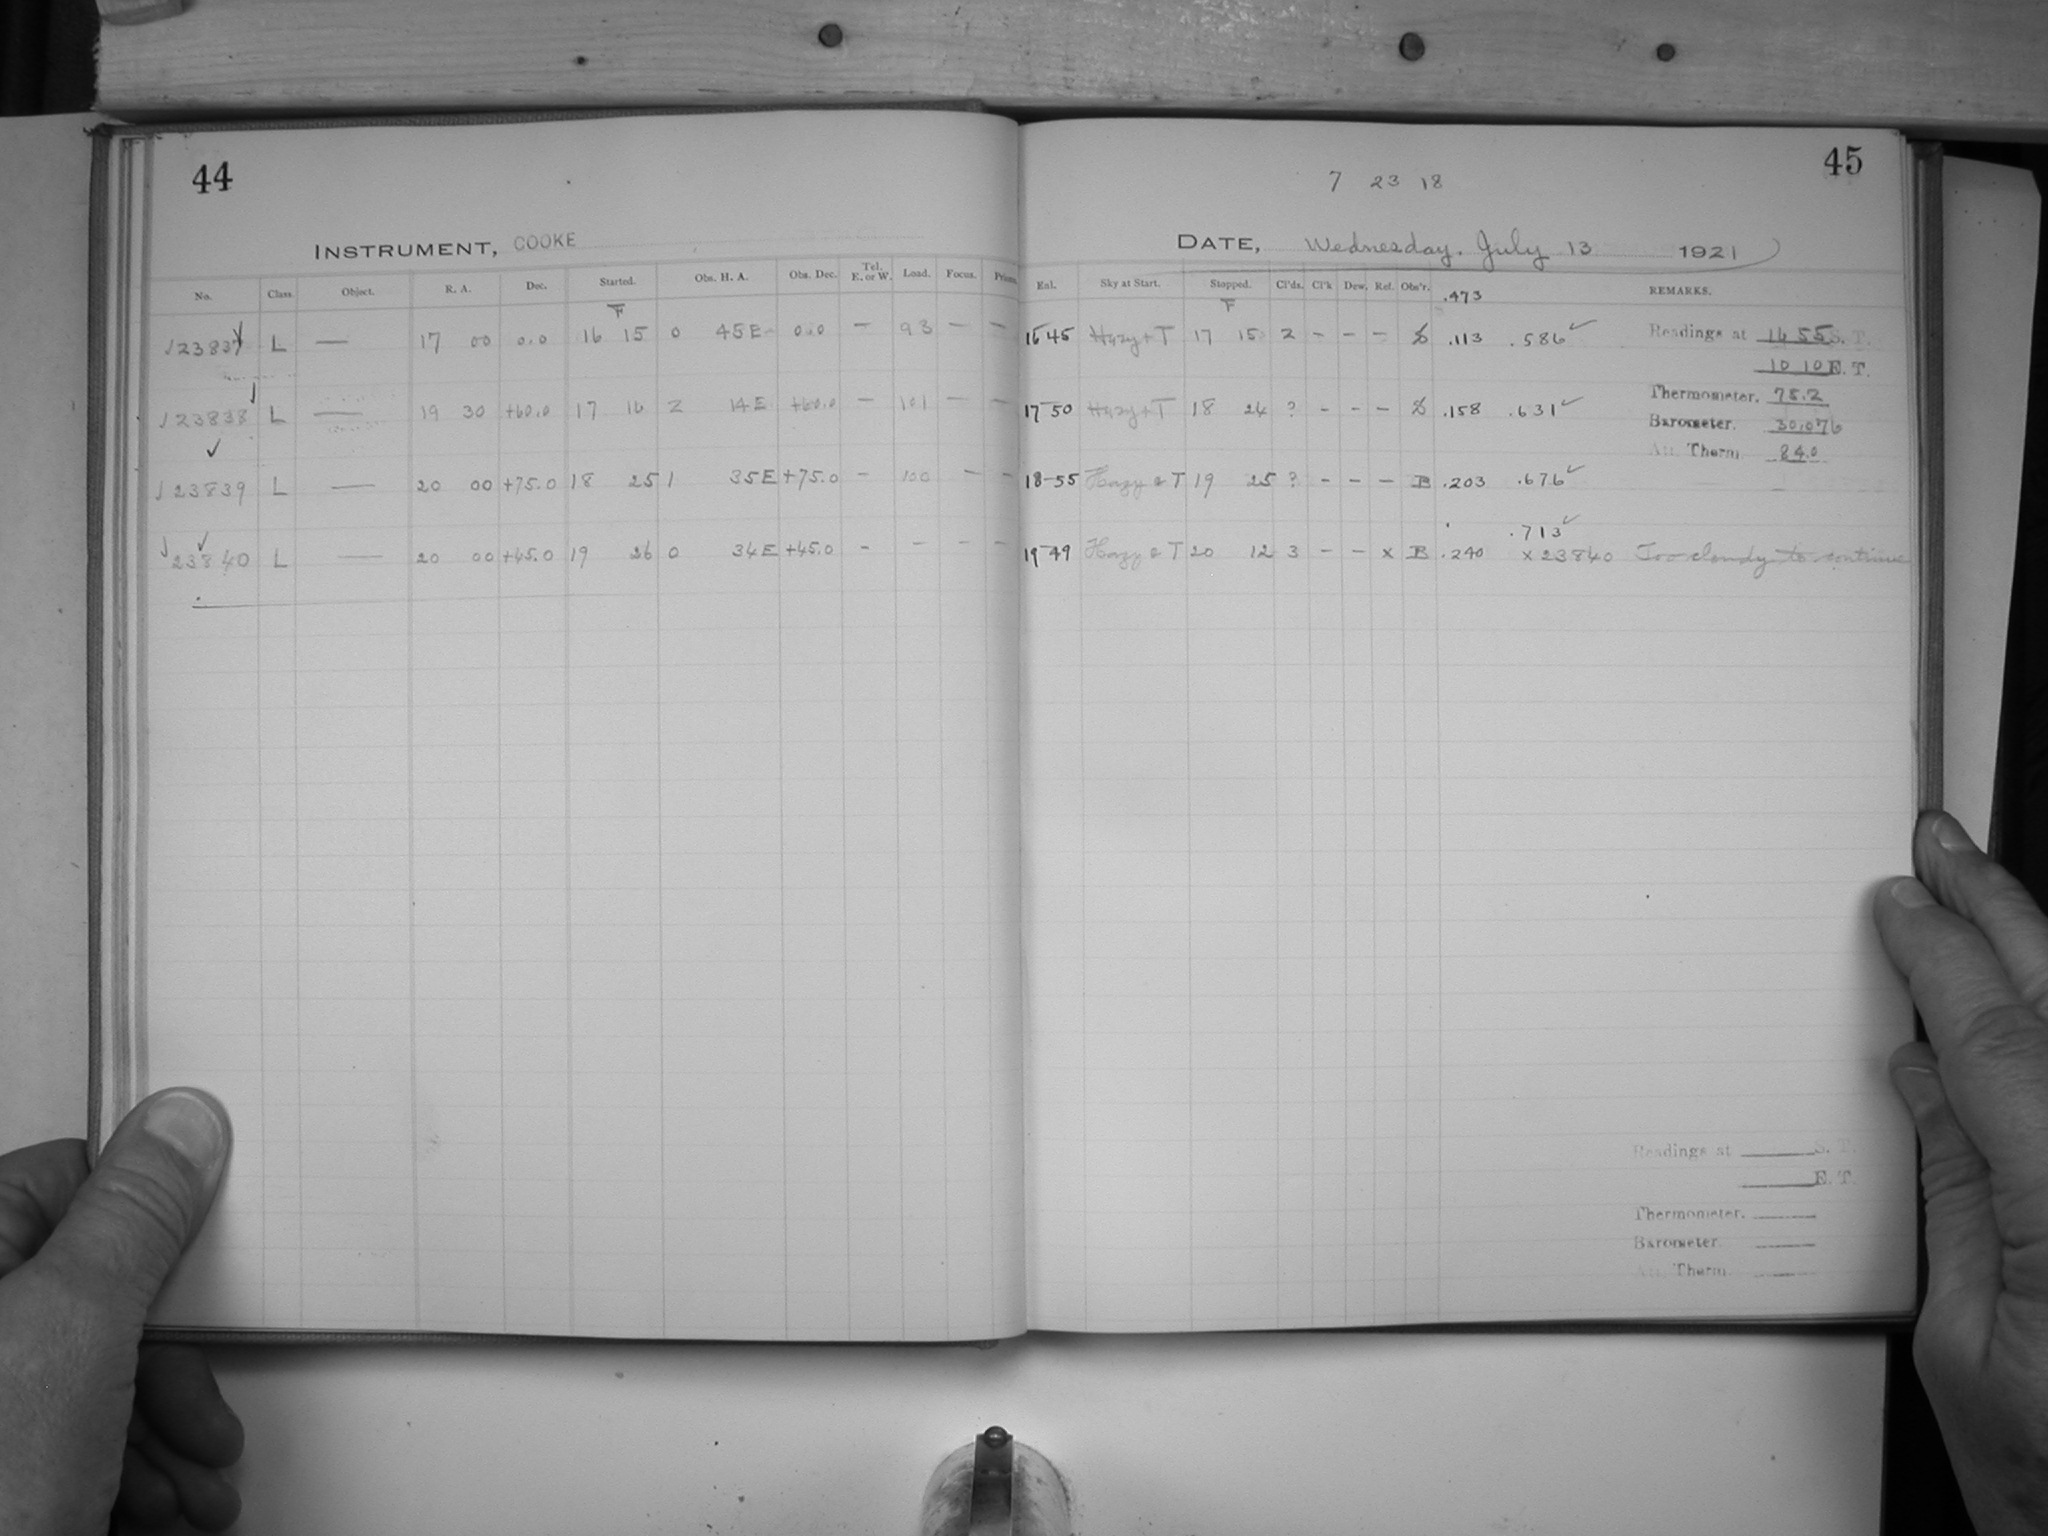 44
INSTRUMENT, COOKE
No. Class. Object. R. A. Dec. Started. Obs. H. A. Obs. Dec. Tel. E. or W. Load. Focus. Prism.
F
23837 L — 17 00 0.0 16 15 0 45E 0.0 — 93 — —
23838 L — 19 30 +60.0 17 16 2 14E +60.0 — 101 — —
23839 L — 20 00 +75.0 18 25 1 35E +75.0 — 100 — —
23840 L — 20 00 +45.0 19 26 0 34E +45.0 - — — —
45
7 23 18
DATE, Wednesday, July 13 1921
Exl. Sky at Start. Stopped. Cl'ds. Cl'k Dew. Ref. Obs'r. .473 REMARKS.
F
16 45 Hazy + T 17 15 2 - - - .113 .586 ✓
17-50 Hazy + T 18 24 ? - - - .158 .631 ✓
18-55 Hazy & T 19 25 ? - - - B .203 .676 ✓
.713 ✓
19-49 Hazy & T 20 12 3 - - x B .240 x 23840 Too cloudy to continue
Readings at 16 55 S. T.
10 10 E. T.
Thermometer. 78.2
Barometer. 30.076
Att. Therm 84.0
Readings at S. T.
E. T.
Thermometer.
Barometer.
Att. Therm.